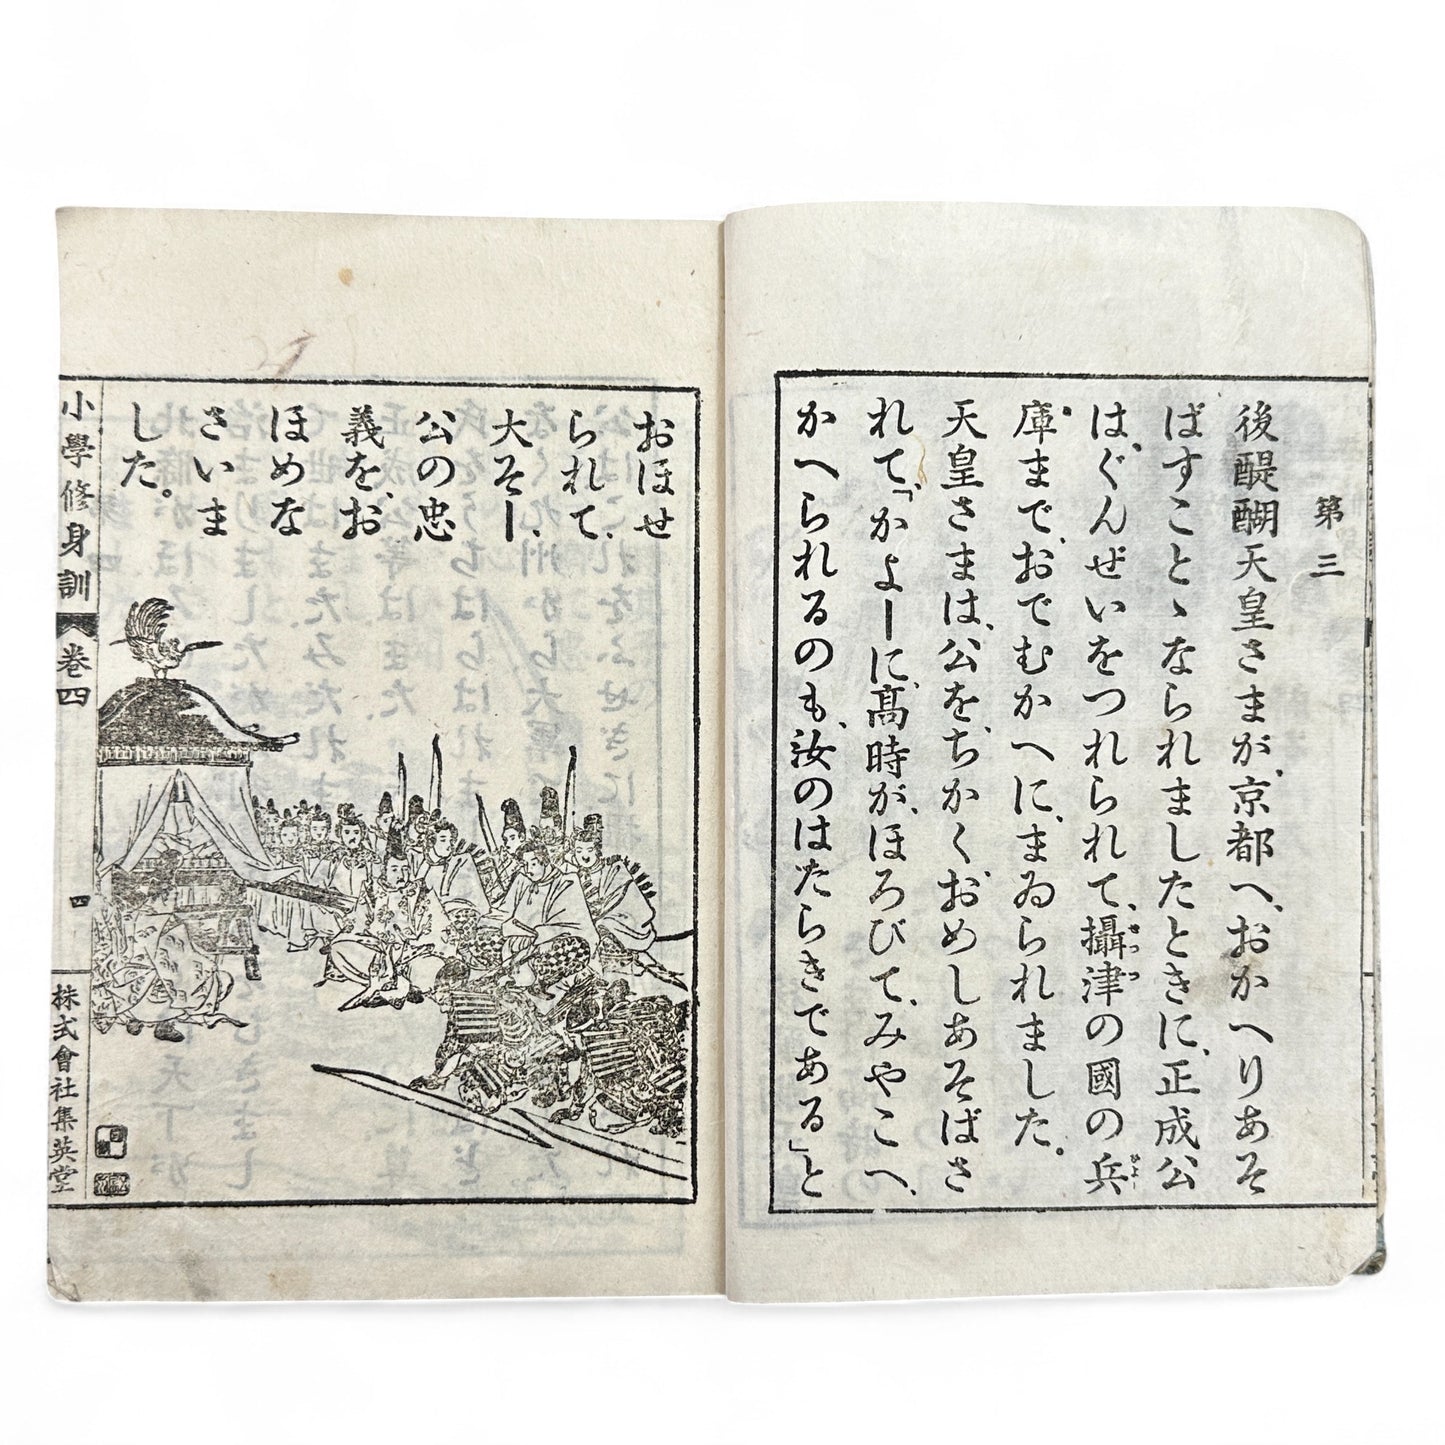 第三
後醍醐天皇さまが、京都へ、おかへりあそ
ばすことゝなられましたときに、正成公
は、ぐんぜいをつれられて、攝津の國の兵
庫まで、おでむかへに、まゐられました。
天皇さまは、公を、ちかく、おめしあそばさ
れて、「かよーに、高時が、ほろびて、みやこへ、
かへられるのも、汝のはたらきである」と
おほせ
られて、
大そー、
公の忠
義を、お
ほめな
さいま
した。
小學修身訓
卷四
四
株式會社集英堂